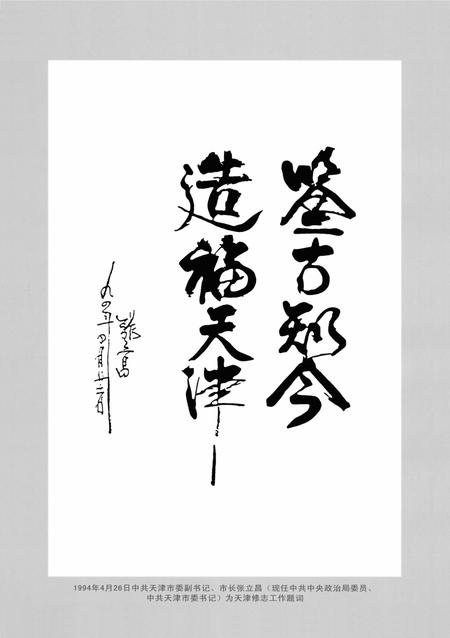 鉴古知今
造福天津
张立昌
九四年四月廿六日
1994年4月26日中共天津市委副书记、市长张立昌（现任中共中央政治局委员、
中共天津市委书记）为天津修志工作题词